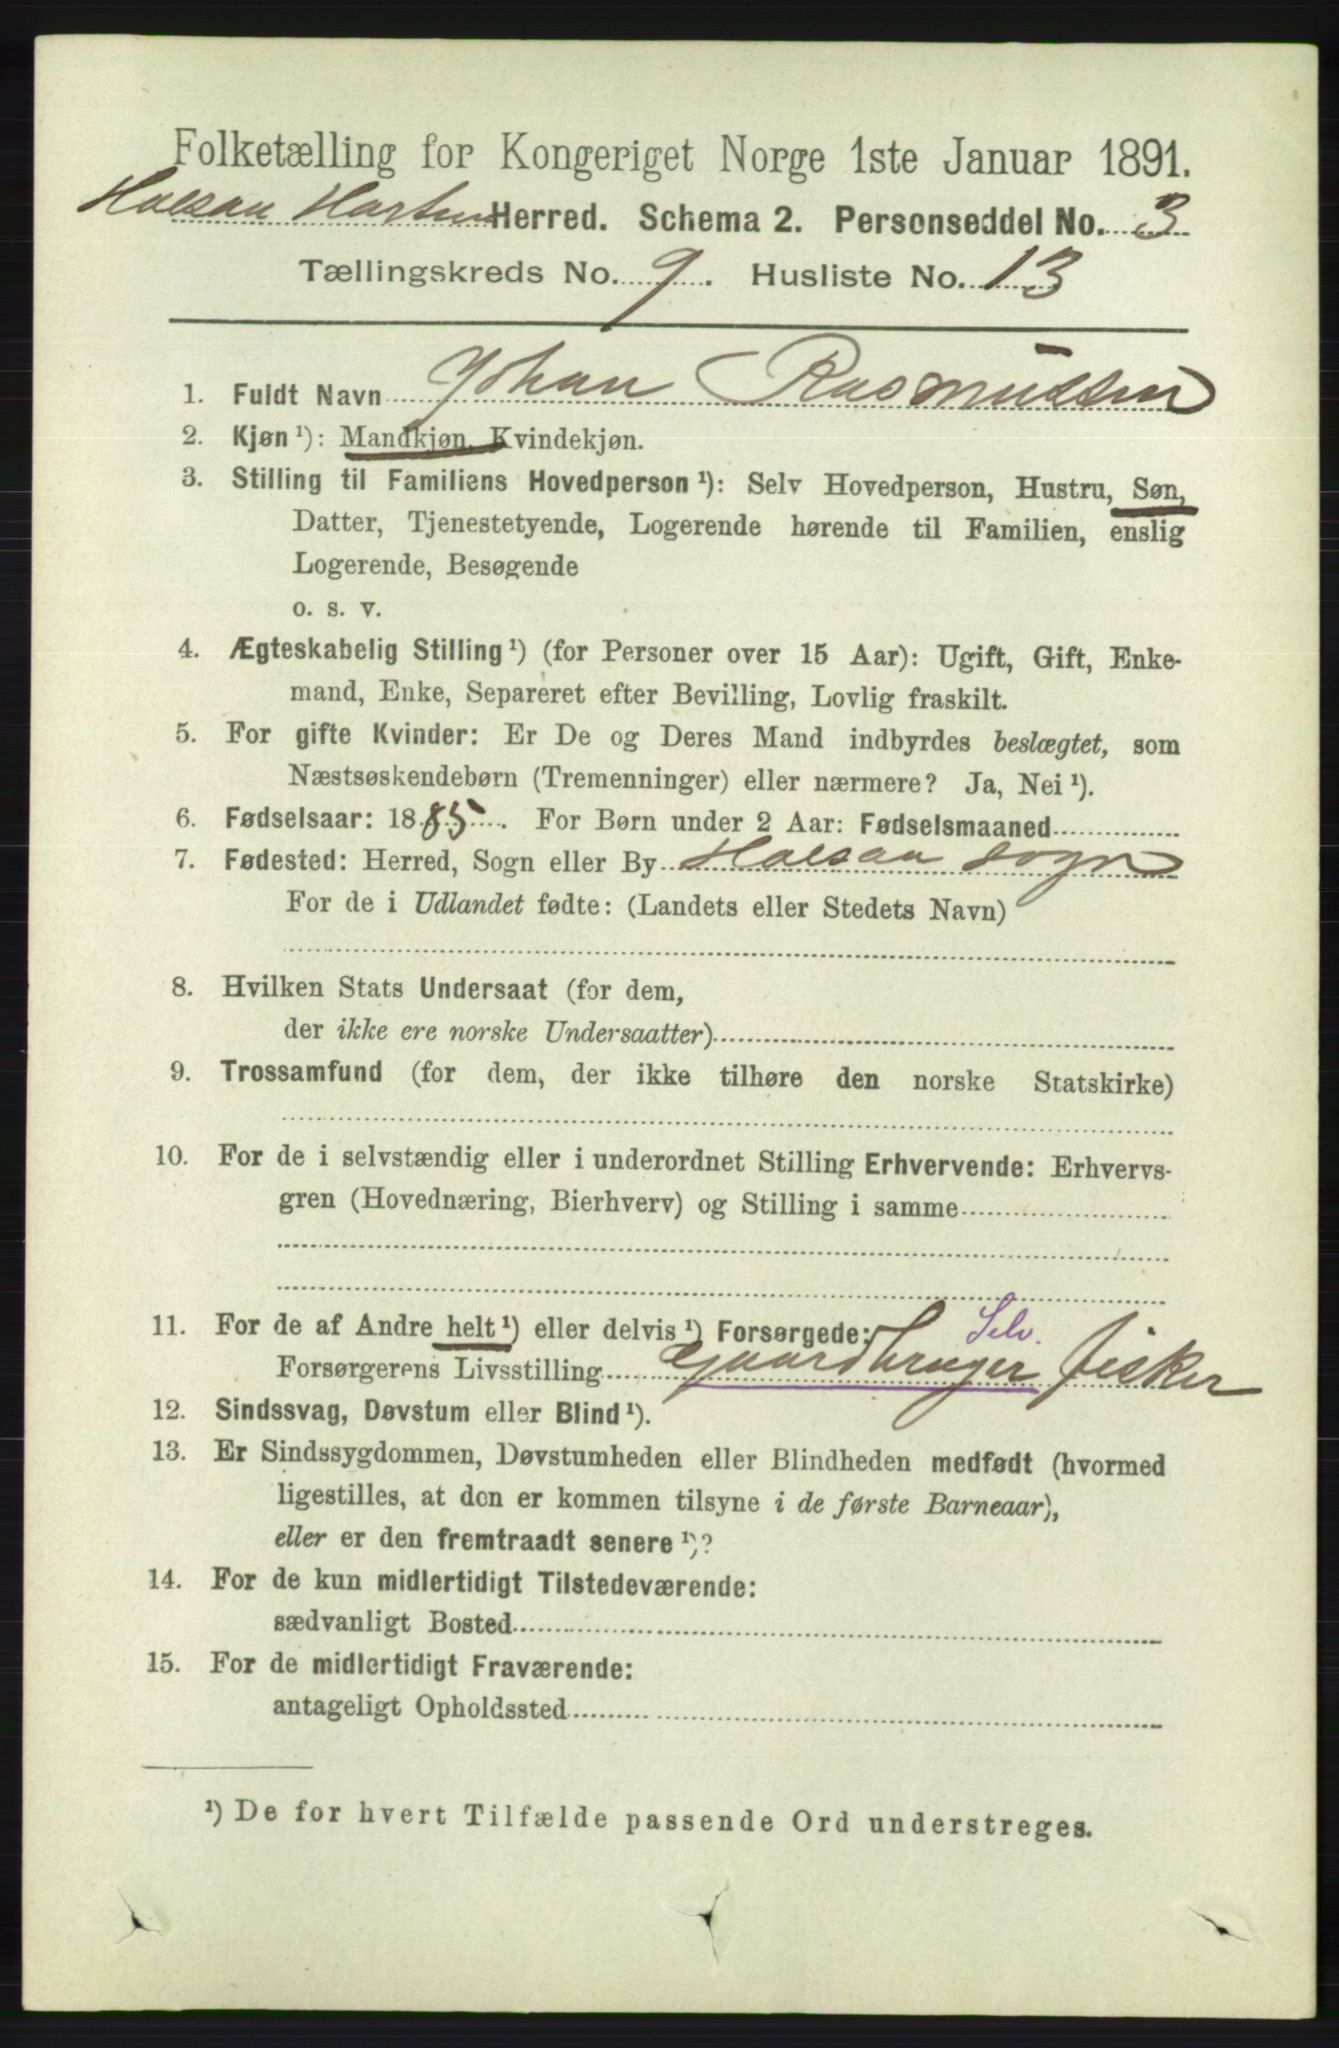 Folketælling for Kongeriget Norge 1ste Januar 1891.
Halsaa Herred. Schema 2. Personseddel No. 3
Tællingskreds No. 9. Husliste No. 13
1. Fuldt Navn Johan Rasmussen
2. Kjøn ¹): Mandkjøn, Kvindekjøn.
3. Stilling til Familiens Hovedperson ¹): Selv Hovedperson, Hustru, Søn,
Datter, Tjenestetyende, Logerende hørende til Familien, enslig
Logerende, Besøgende
o. s. v.
4. Ægteskabelig Stilling ¹) (for Personer over 15 Aar): Ugift, Gift, Enke-
mand, Enke, Separeret efter Bevilling, Lovlig fraskilt.
5. For gifte Kvinder: Er De og Deres Mand indbyrdes beslægtet, som
Næstsøskendebørn (Tremenninger) eller nærmere? Ja, Nei ¹).
6. Fødselsaar: 1885. For Børn under 2 Aar: Fødselsmaaned
7. Fødested: Herred, Sogn eller By Halsaa sogn
For de i Udlandet fødte: (Landets eller Stedets Navn)
8. Hvilken Stats Undersaat (for dem,
der ikke ere norske Undersaatter)
9. Trossamfund (for dem, der ikke tilhøre den norske Statskirke)
10. For de i selvstændig eller i underordnet Stilling Erhvervende: Erhvervs-
gren (Hovednæring, Bierhverv) og Stilling i samme
11. For de af Andre helt ¹) eller delvis ¹) Forsørgede: Selv.
Forsørgerens Livsstilling Gaardbruger fisker
12. Sindssvag, Døvstum eller Blind ¹).
13. Er Sindssygdommen, Døvstumheden eller Blindheden medfødt (hvormed
ligestilles, at den er kommen tilsyne i de første Barneaar),
eller er den fremtraadt senere ¹)?
14. For de kun midlertidigt Tilstedeværende:
sædvanligt Bosted
15. For de midlertidigt Fraværende:
antageligt Opholdssted
¹) De for hvert Tilfælde passende Ord understreges.